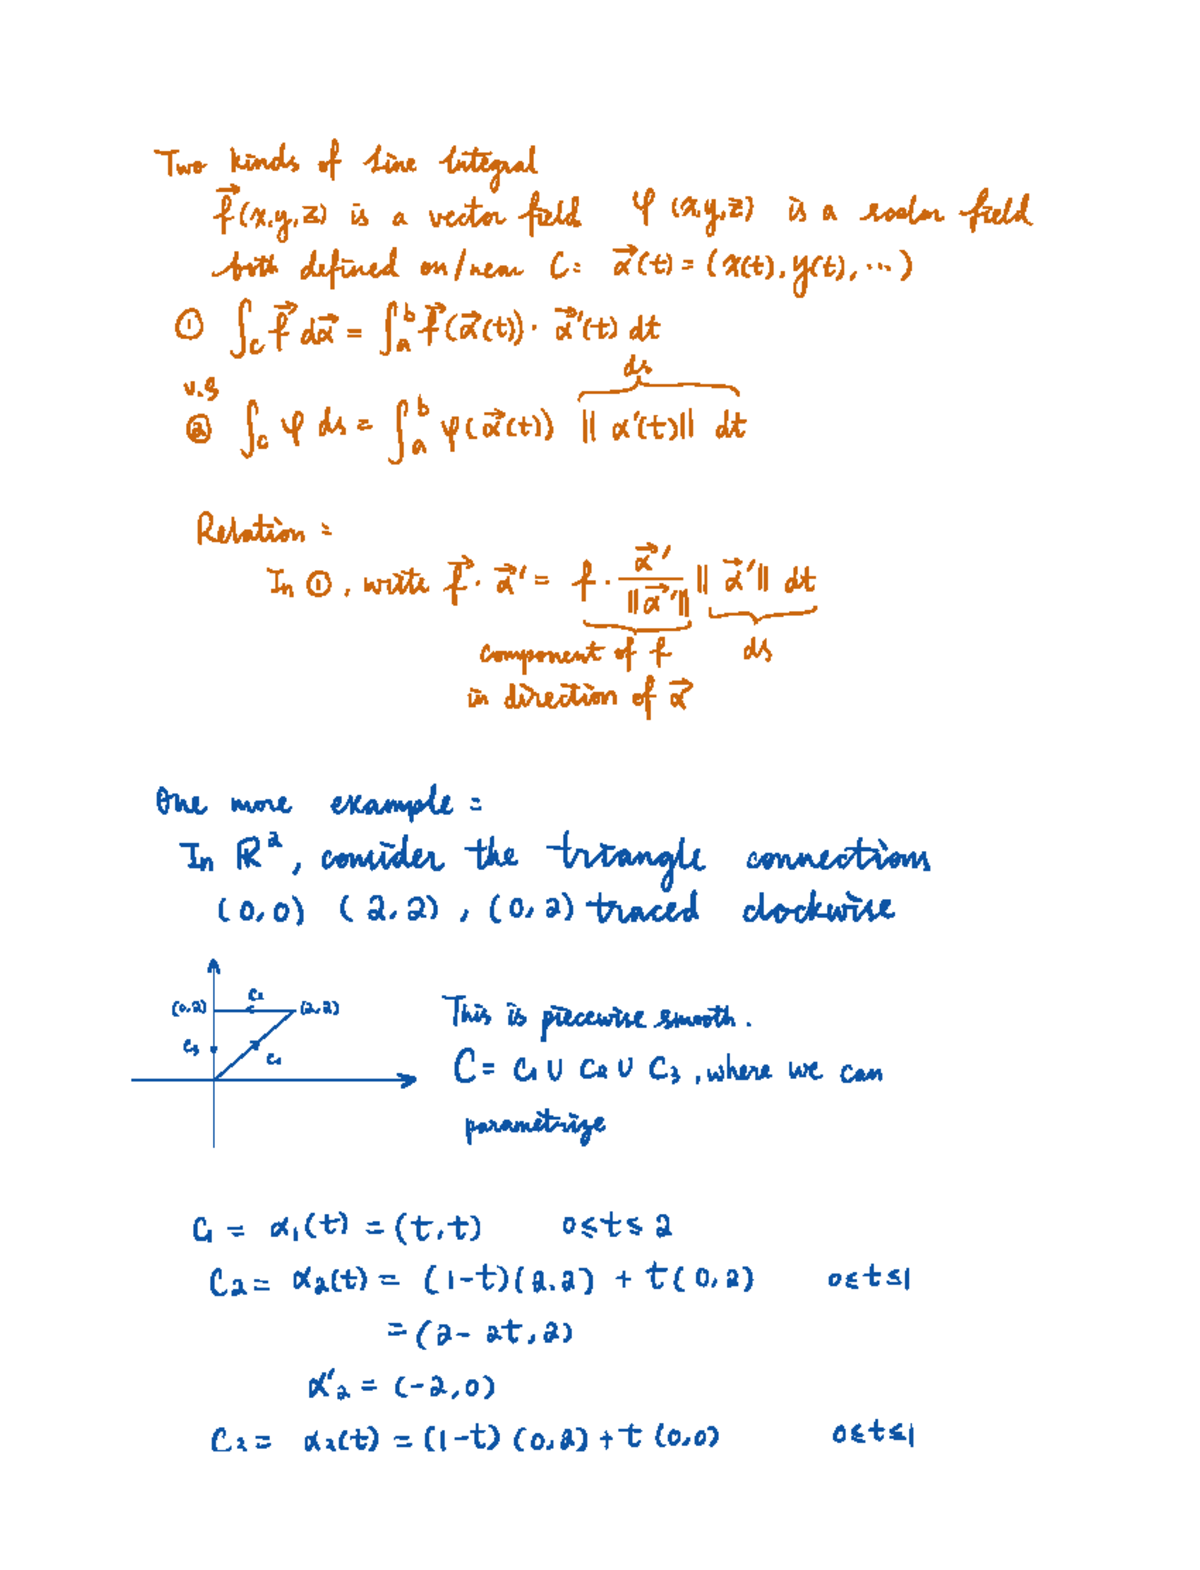 Two kinds of Line Integral
f⃗(x,y,z) is a vector field φ(x,y,z) is a scalar field
both defined on/near C: α⃗(t) = (x(t), y(t), ...)
① ∫_C f⃗ dα⃗ = ∫_a^b f⃗(α⃗(t)) · α⃗'(t) dt
v.s
② ∫_C φ ds = ∫_a^b φ(α⃗(t)) ‖α'(t)‖ dt
ds
Relation:
In ①, write f⃗ · α⃗' = f · α⃗'/‖α⃗'‖ ‖α⃗'‖ dt
component of f
in direction of α⃗
ds
One more example:
In ℝ², consider the triangle connections
(0,0) (2,2), (0,2) traced clockwise
(0,2) C2 (2,2)
C3 C1
This is piecewise smooth.
C = C1 ∪ C2 ∪ C3, where we can
parametrize
C1 = α1(t) = (t,t) 0≤t≤2
C2 = α2(t) = (1-t)(2,2) + t(0,2) 0≤t≤1
= (2-2t, 2)
α'2 = (-2,0)
C3 = α3(t) = (1-t)(0,2) + t(0,0) 0≤t≤1